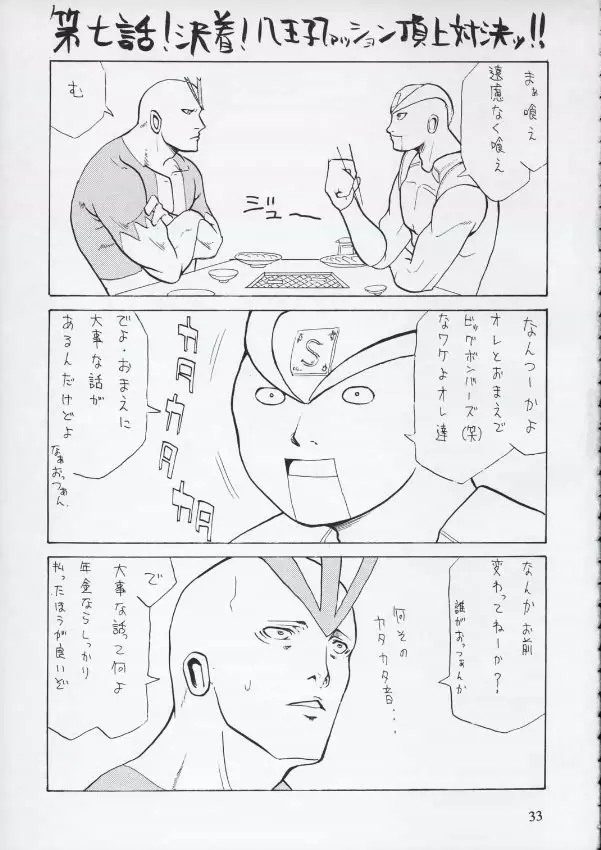 第七話!決着!八王子ファッション頂上対決ッ!!
まぁ喰え
遠慮なく喰え
む
ジュー
なんつーかよ
オレとおまえで
ビッグボンバーズ(笑)
なワケよオレ達
S
でよ・おまえに
大事な話が
あるんだけどよ
なぁおっつぁん
カタカタカタ
なんかお前
変わってねーか?
誰がおっつぁんか
何その
カタカタ音…
で
大事な話って何よ
年金ならしっかり
払ったほうが良いぞ
33